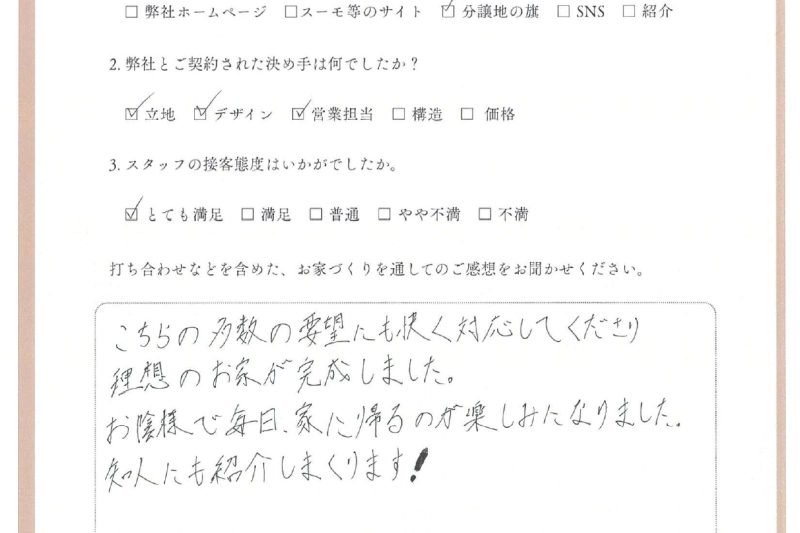 ☐ 弊社ホームページ ☐スーモ等のサイト ☑ 分譲地の旗 ☐ SNS ☐ 紹介
2. 弊社とご契約された決め手は何でしたか？
☑ 立地 ☑ デザイン ☑ 営業担当 ☐ 構造 ☐ 価格
3. スタッフの接客態度はいかがでしたか。
☑ とても満足 ☐ 満足 ☐ 普通 ☐ やや不満 ☐ 不満
打ち合わせなどを含めた、お家づくりを通してのご感想をお聞かせください。
こちらの多数の要望にも快く対応してくださり
理想のお家が完成しました。
お陰様で毎日、家に帰るのが楽しみになりました。
知人にも紹介しまくります！